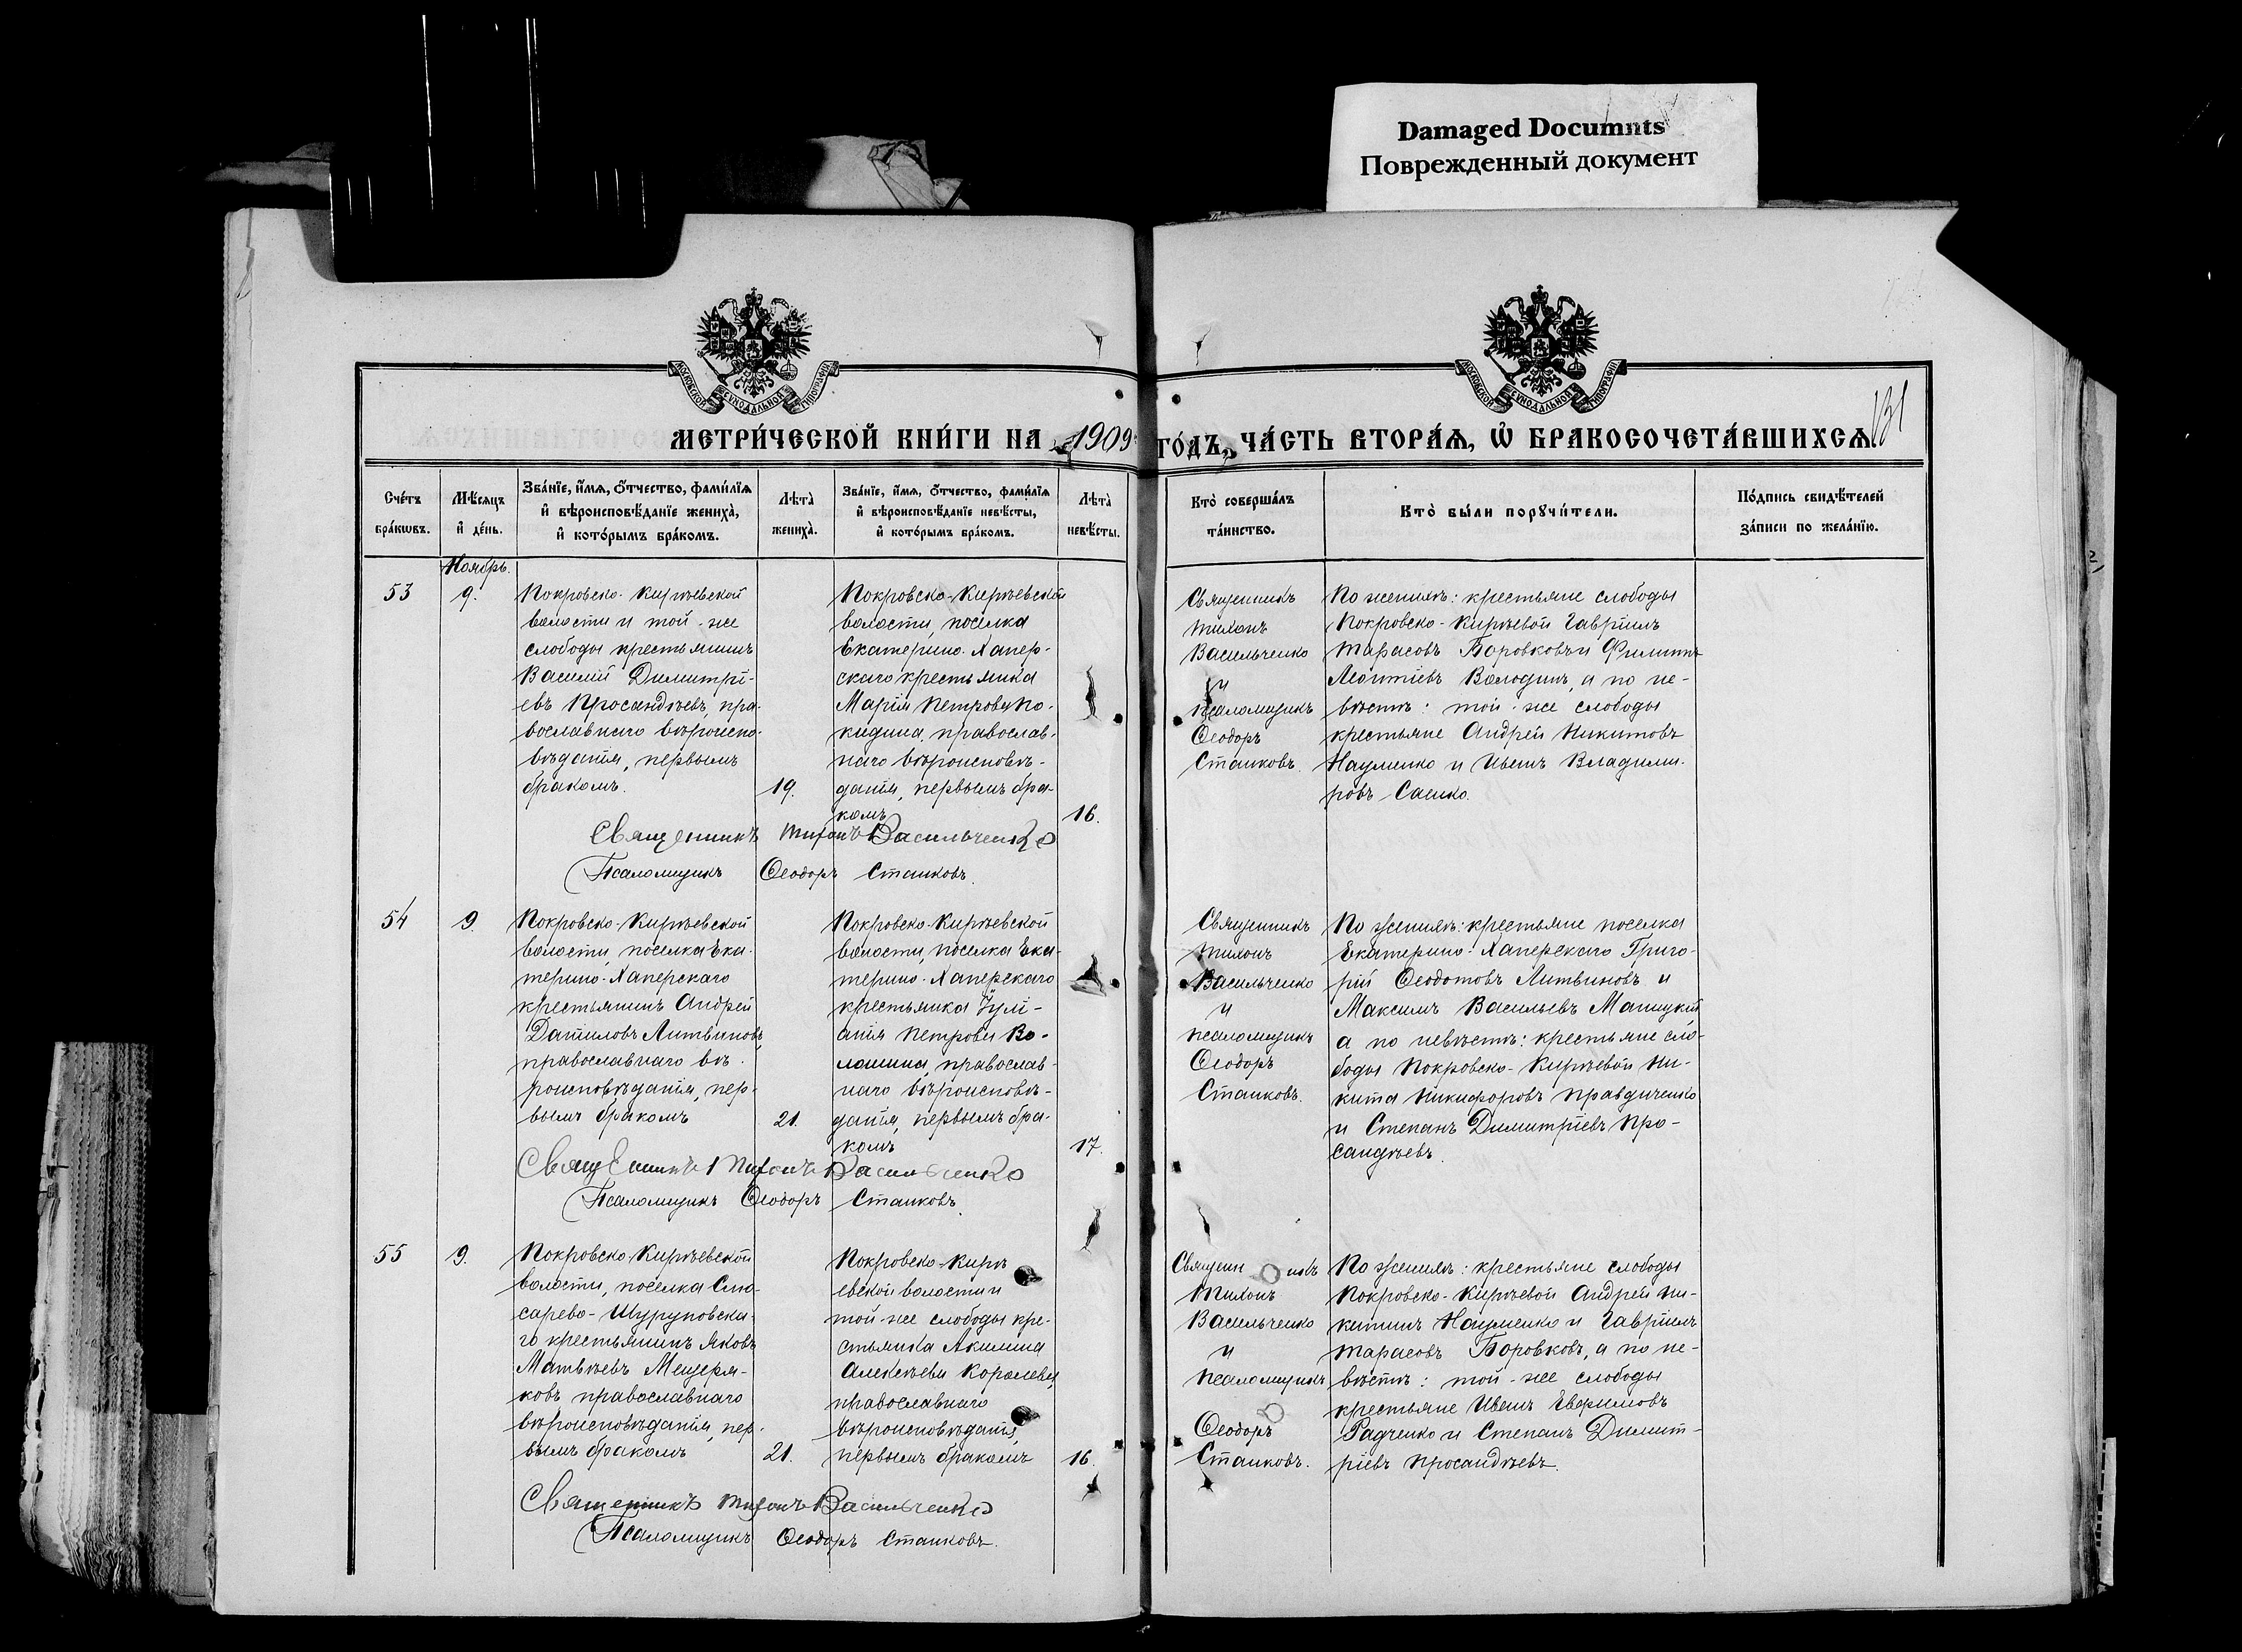 Damaged Documnts
Поврежденный документ
МОСКОВСКОЙ СѴНОДАЛЬНОЙ ТИПОГРАФІИ
МОСКОВСКОЙ СѴНОДАЛЬНОЙ ТИПОГРАФІИ
131
МЕТРИ́ЧЕСКОЙ КНИ́ГИ НА 1909 ГО́ДЪ, ЧА́СТЬ ВТОРА́Ѧ, Ѽ БРАКОСОЧЕТА́ВШИХСѦ
Сче́тъ
бра́кѡвъ.
Мѣ́сяцъ
и҆ де́нь.
Зва́нїе, и҆́мѧ, ѻ҆́тчество, фами́лїѧ
и҆ вѣроисповѣ́данїе жениха̀,
и҆ кото́рымъ бра́комъ.
Лѣта̀
жениха̀.
Зва́нїе, и҆́мѧ, ѻ҆́тчество, фами́лїѧ
и҆ вѣроисповѣ́данїе невѣ́сты,
и҆ кото́рымъ бра́комъ.
Лѣта̀
невѣ́сты.
Кто̀ соверша́лъ
та́инство.
Кто̀ бы́ли порꙋчи́тели.
По́дпись свидѣ́телей
за́писи по жела́нїю.
Ноябрь.
53
9.
Покровско-Кирѣевской
волости и той-же
слободы крестьянинъ
Василій Димитрі-
евъ Просандѣевъ, пра-
вославнаго вѣроиспо-
вѣданія, первымъ
бракомъ.
19.
Покровско-Кирѣевской
волости, поселка
Екатерино-Хапер-
скаго крестьянка
Марія Петрова По-
кидина, православ-
наго вѣроисповѣ-
данія, первымъ бра-
комъ
16.
Священникъ
Тихонъ
Васильченко
и
псаломщикъ
Ѳеодоръ
Станковъ.
По женихѣ: крестьяне слободы
Покровско-Кирѣевой Гавріилъ
Тарасовъ Боровковъ и Филиппъ
Леонтіевъ Володинъ, а по не-
вѣстѣ: той-же слободы
крестьяне Андрей Никитовъ
Науменко и Иванъ Владими-
ровъ Саенко.
Священникъ Тихонъ Васильченко
Псаломщикъ Ѳеодоръ Станковъ.
54
9.
Покровско-Кирѣевской
волости, поселка Ека-
терино-Хаперскаго
крестьянинъ Андрей
Даниловъ Литвиновъ,
православнаго вѣ-
роисповѣданія, пер-
вымъ бракомъ
21.
Покровско-Кирѣевской
волости, поселка Ека-
терино-Хаперскаго
крестьянка Іулі-
анія Петрова Во-
лошина, православ-
наго вѣроисповѣ-
данія, первымъ бра-
комъ
17.
Священникъ
Тихонъ
Васильченко
и
псаломщикъ
Ѳеодоръ
Станковъ.
По женихѣ: крестьяне поселка
Екатерино-Хаперскаго Григо-
рій Ѳеодотовъ Литвиновъ и
Максимъ Васильевъ
а по невѣстѣ: крестьяне сло-
боды Покровско-Кирѣевой Ни-
кита Никифоровъ Правдиченко
и Степанъ Димитріевъ Про-
сандѣевъ.
Священникъ Тихонъ Васильченко
Псаломщикъ Ѳеодоръ Станковъ.
55
9.
Покровско-Кирѣевской
волости, поселка Слю-
сарево-Шуруповска-
го крестьянинъ Яковъ
Матвѣевъ Мещеря-
ковъ православнаго
вѣроисповѣданія, пер-
вымъ бракомъ
21.
Покровско-Кирѣ
евской волости и
той-же слободы кре-
стьянка Акилина
Алексѣева Королева,
православнаго
вѣроисповѣданія,
первымъ бракомъ
16.
Священникъ
Тихонъ
Васильченко
и
псаломщикъ
Ѳеодоръ
Станковъ.
По женихѣ: крестьяне слободы
Покровско-Кирѣевой Андрей Ни-
китинъ Науменко и Гавріилъ
Тарасовъ Боровковъ, а по не-
вѣстѣ: той-же слободы
крестьяне Иванъ Евфимовъ
Радченко и Степанъ Димит-
ріевъ Просандѣевъ.
Священникъ Тихонъ Васильченко
Псаломщикъ Ѳеодоръ Станковъ.